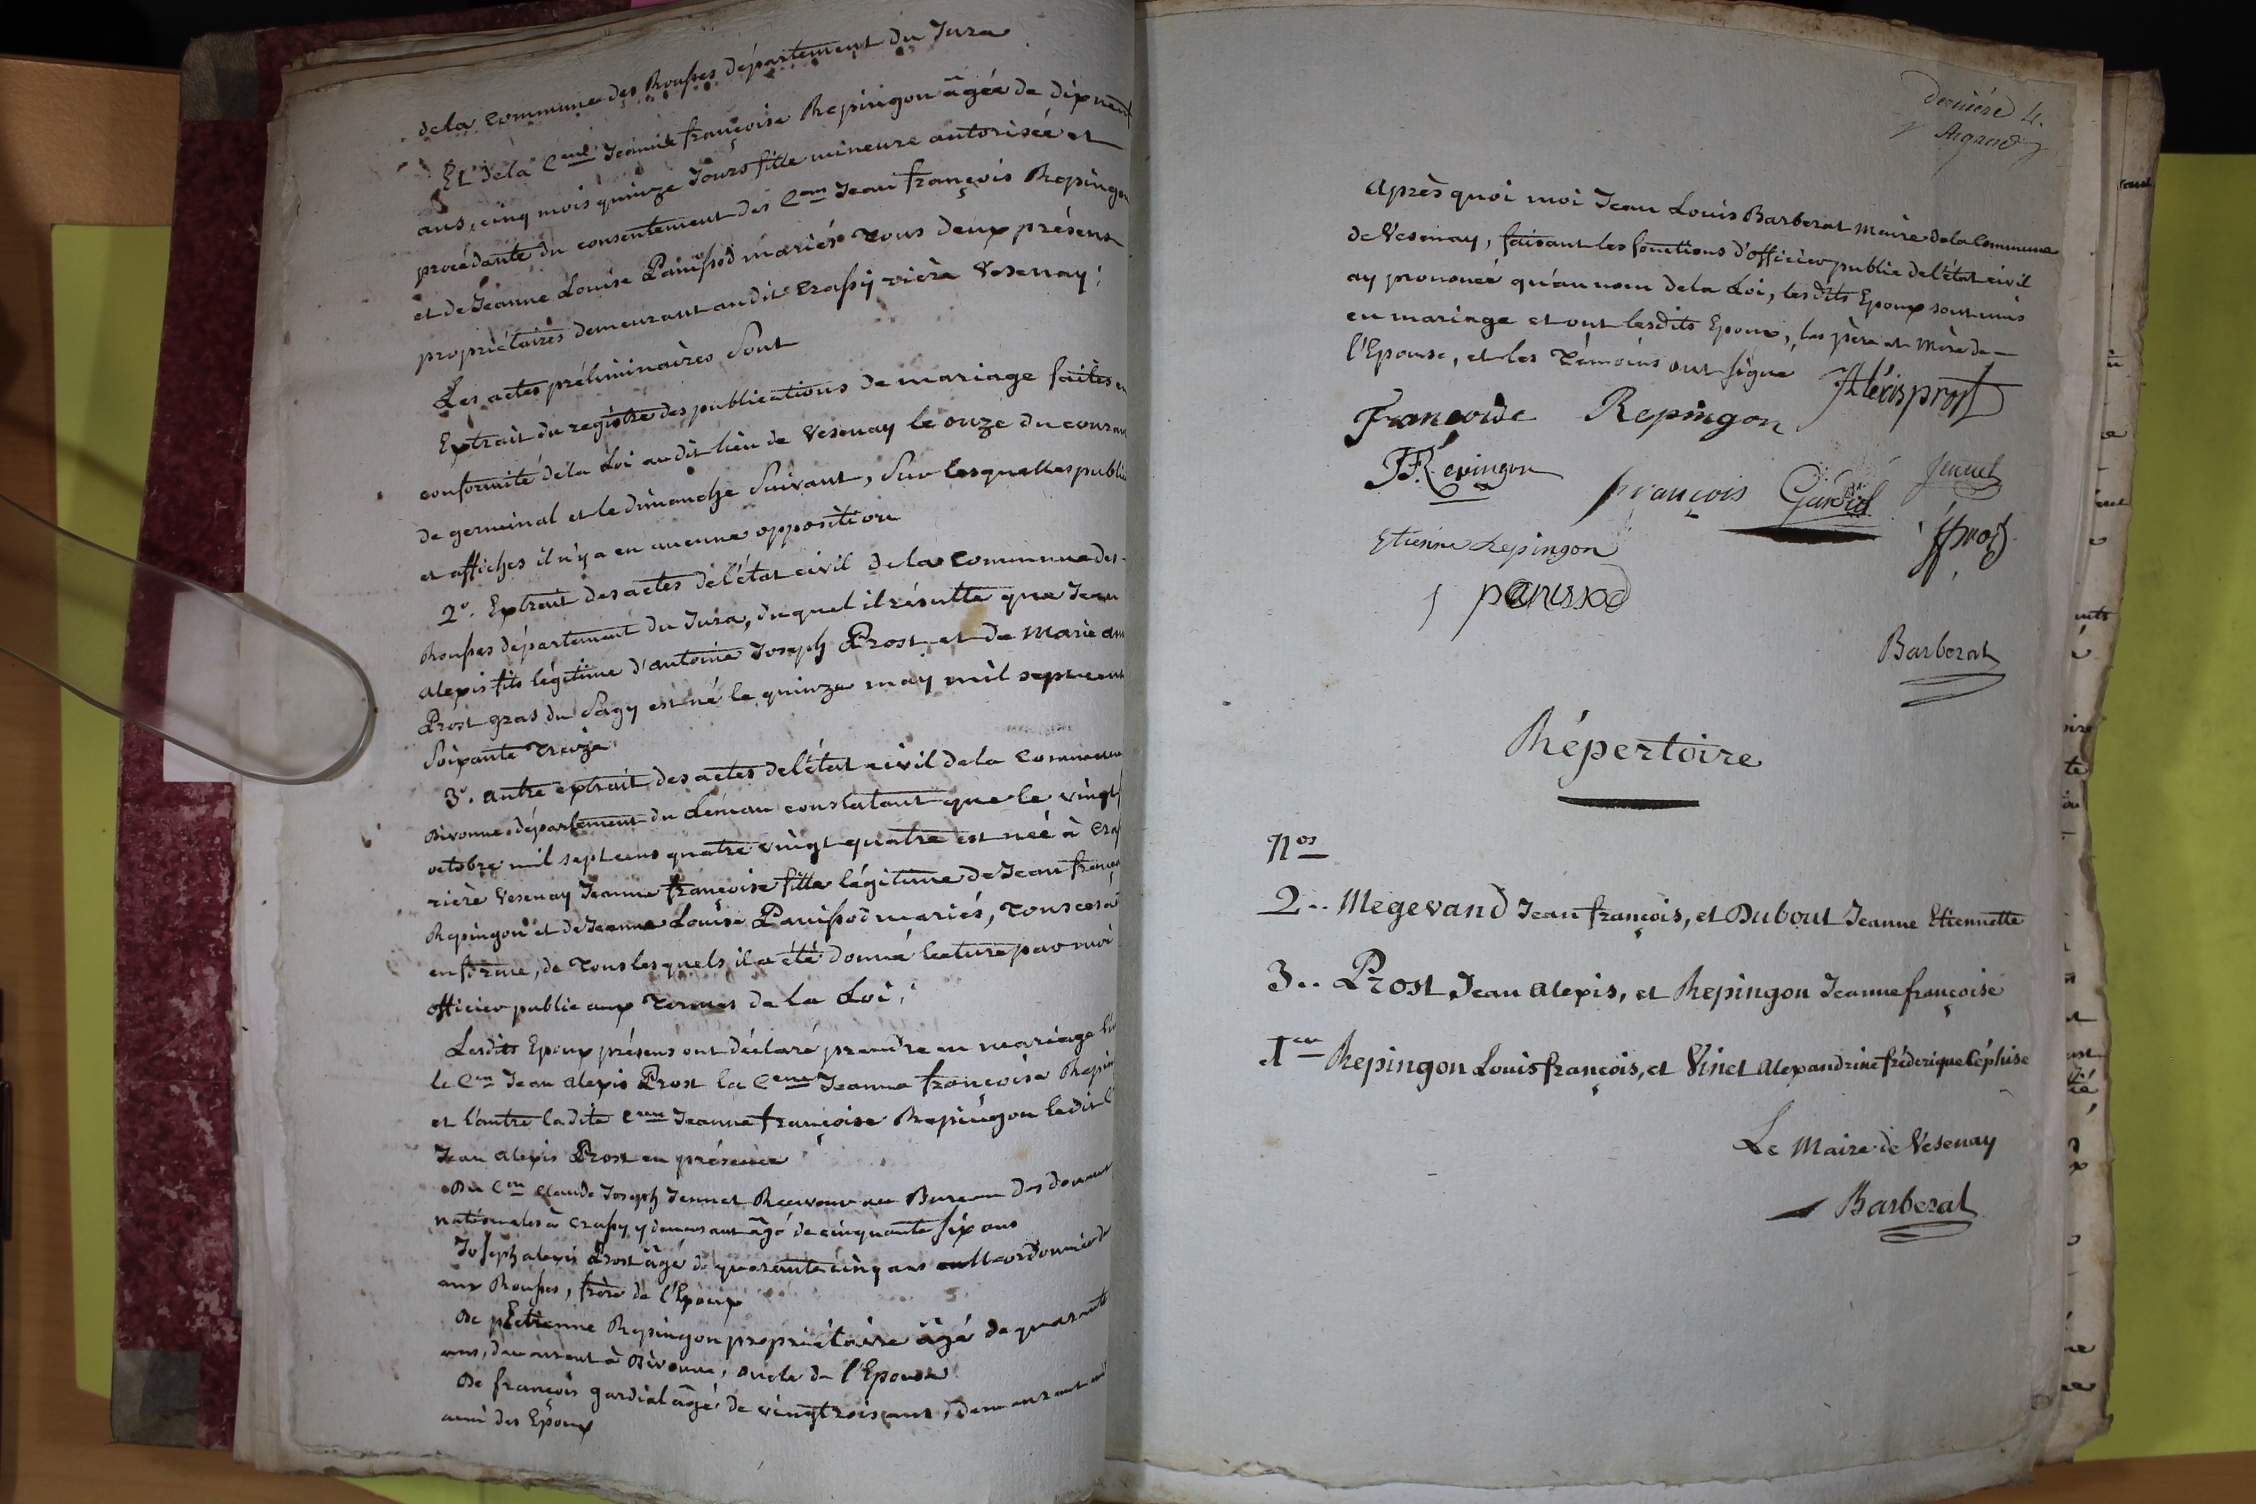 de la commune des Rousses département du Jura
Et de la C.enne Jeanne françoise Repingon âgée de dix neuf
ans, cinq mois quinze Jours fille mineure autorisée et
procédante du consentement des C.ens Jean françois Repingon
et de Jeanne Louise Panissod mariés tous deux présens
propriétaires demeurant audit Crassy rière Vesenay;
Les actes préliminaires sont
Extrait du registre des publications de mariage faites en
conformité de la Loi audit lieu de Vesenay le onze du courant
de germinal et le dimanche suivant, sur lesquelles publi
et affiches il n'y a eu aucune opposition
2°. Extrait des actes de l'état civil de la commune des
Rousses département du Jura, duquel il résulte que Jean
alexis fils légitime d'antoine Joseph Prost et de Marie ann
Prost gras du Sagy est né le quinze may mil sept cent
soixante treize
3°. autre extrait des actes de l'état civil de la commune
Divonne département du Léman constatant que le vingt
octobre mil sept cens quatre vingt quatre est née à Cras
rière Vesenay Jeanne françoise fille légitime de Jean franç
Repingon et de Jeanne Louise Panissod mariés, tous ces a
en forme, de tous lesquels il a été donné lecture par moi
officier public aux termes de la Loi;
Lesdits Epoux présens ont déclaré prendre en mariage l'u
le C.en Jean alexis Prost la C.enne Jeanne françoise Repin
et l'autre la dite C.enne Jeanne françoise Repingon ledit C
Jean alexis Prost en présence
Du C.en Claude Joseph Jennet Receveur au Bureau des douanes
nationales à Crassy y demeurant âgé de cinquante six ans
Joseph alexis Prost âgé de quarante cinq ans cordonnier de
aux Rousses, frère de l'Epoux
De Etienne Repingon propriétaire âgé de quarante
ans, demeurant à Divonne, oncle de l'Epouse
De françois gardial âgé de vingt trois ans, demeurant
ami des Epoux
dernière 4.
Après quoi moi Jean Louis Barberat Maire de la Commune
de Vesenay, faisant les fonctions d'officier public de l'état civil
ay prononcé qu'au nom de la Loi, lesdits Epoux sont unis
en mariage et ont lesdits Epoux, les père et Mère de
l'Epouse, et les témoins ont signé
Aléxis prost
Françoise Repingon
JF Repingon
françois Gardial
Jennet
Etienne Repingon
JProst
J panissod
Barberat
Répertoire
N.os
2.. Megevand Jean françois, et Dubout Jeanne Etiennette
3.. Prost Jean alexis, et Repingon Jeanne françoise
1.er Repingon Louis françois, et Vinet Alexandrine fréderique Céphise
Le Maire de Vesenay
Barberat